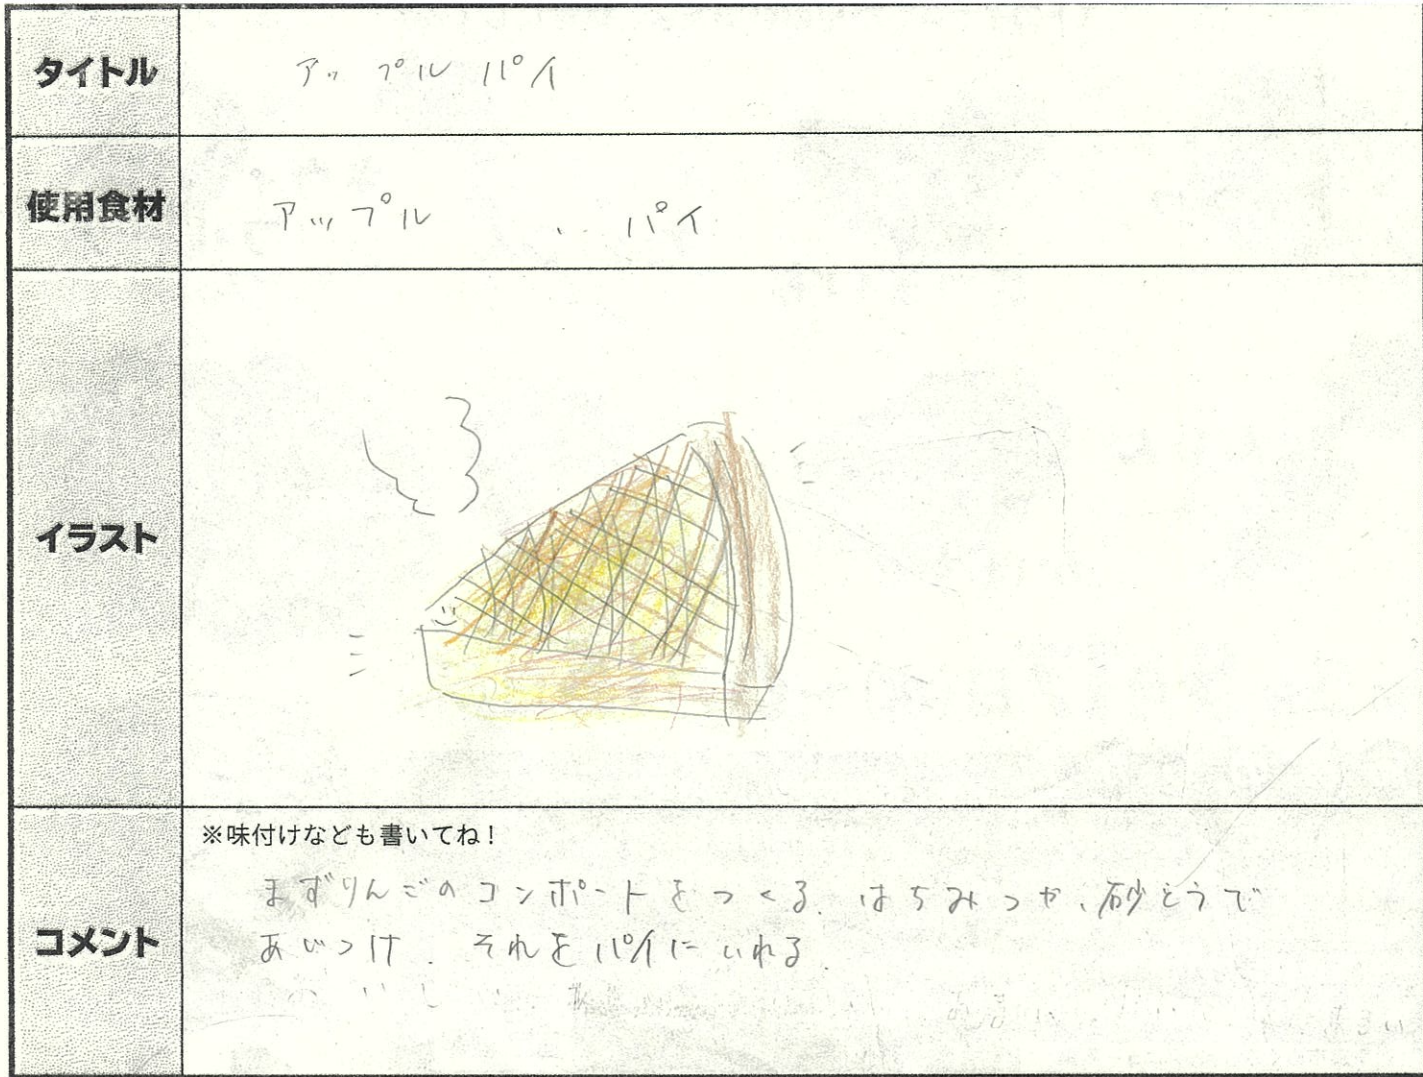 タイトル
アップルパイ
使用食材
アップル 、 パイ
イラスト
コメント
※味付けなども書いてね!
まずりんごのコンポートをつくる. はちみつや、砂とうで
あじつけ. それをパイにいれる.